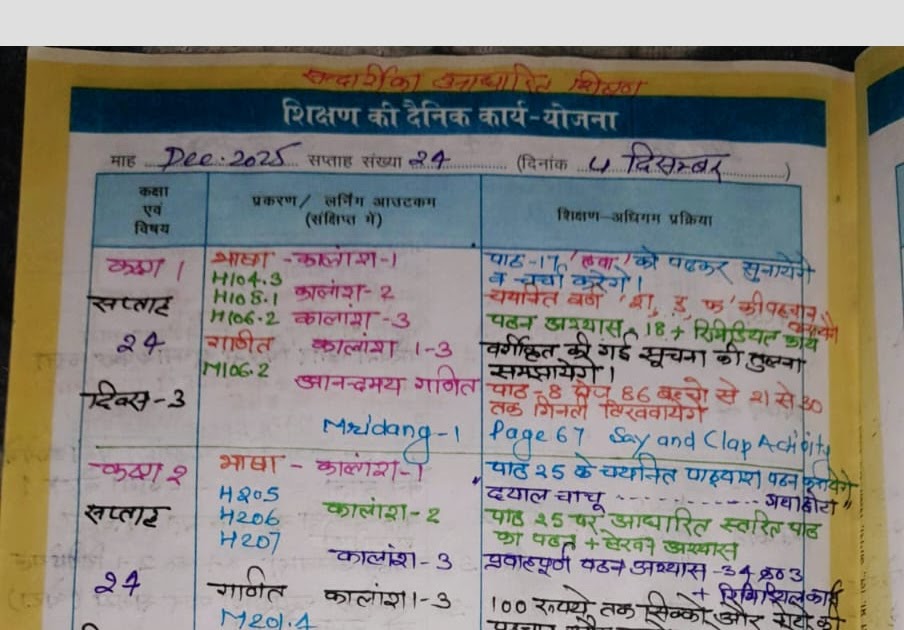 सन्दर्शिका आधारित शिक्षण
शिक्षण की दैनिक कार्य-योजना
माह Dec. 2025 सप्ताह संख्या 24 (दिनांक 4 दिसम्बर)
कक्षा एवं विषय
प्रकरण/ लर्निंग आउटकम (संक्षिप्त में)
शिक्षण-अधिगम प्रक्रिया
कक्षा 1
सप्ताह
24
दिवस-3
भाषा - कालांश-1
H104.3
H108.1 कालांश-2
H106.2 कालांश-3
गणित कालांश 1-3
M106.2
आनन्दमय गणित
Mridang-1
पाठ-17 'हवा' को पढकर सुनायेंगे
व चर्चा करेगे।
चयनित वर्ण 'श, ड़, फ' की पहचान करायेंगे
पठन अभ्यास 18 + रिमिडियल कार्य
वर्गीकृत की गई सूचना की तुलना
समझायेगे।
पाठ 8 पेज 86 से 21 से 30
तक गिनती लिखवायेंगे
Page 67 Say and Clap Activity
कक्षा 2
सप्ताह
24
भाषा - कालांश-1
H205
H206 कालांश-2
H207
कालांश-3
गणित कालांश1-3
M201.4
पाठ 25 के चयनित पाठ्यांश पठन करायेंगे
दयाल चाचू ---------------
पाठ 25 पर आधारित स्तरित पाठ
का पठन + लेखन अभ्यास
प्रवाहपूर्ण पठन अभ्यास -34
+ रिमिडियल कार्य
100 रुपये तक सिक्को और नोटो की